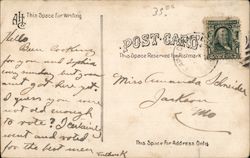 This Space for Writing
35.00
POST CARD
This Space Reserved for Postmark
Hello
Been looking
for you and
any sunday but you
not got here yet.
I guess you were
not old enough
to vote? I
went and voted
for the best man
Miss Amanda Schreiber
Jackson
Mo
This Space for Address Only